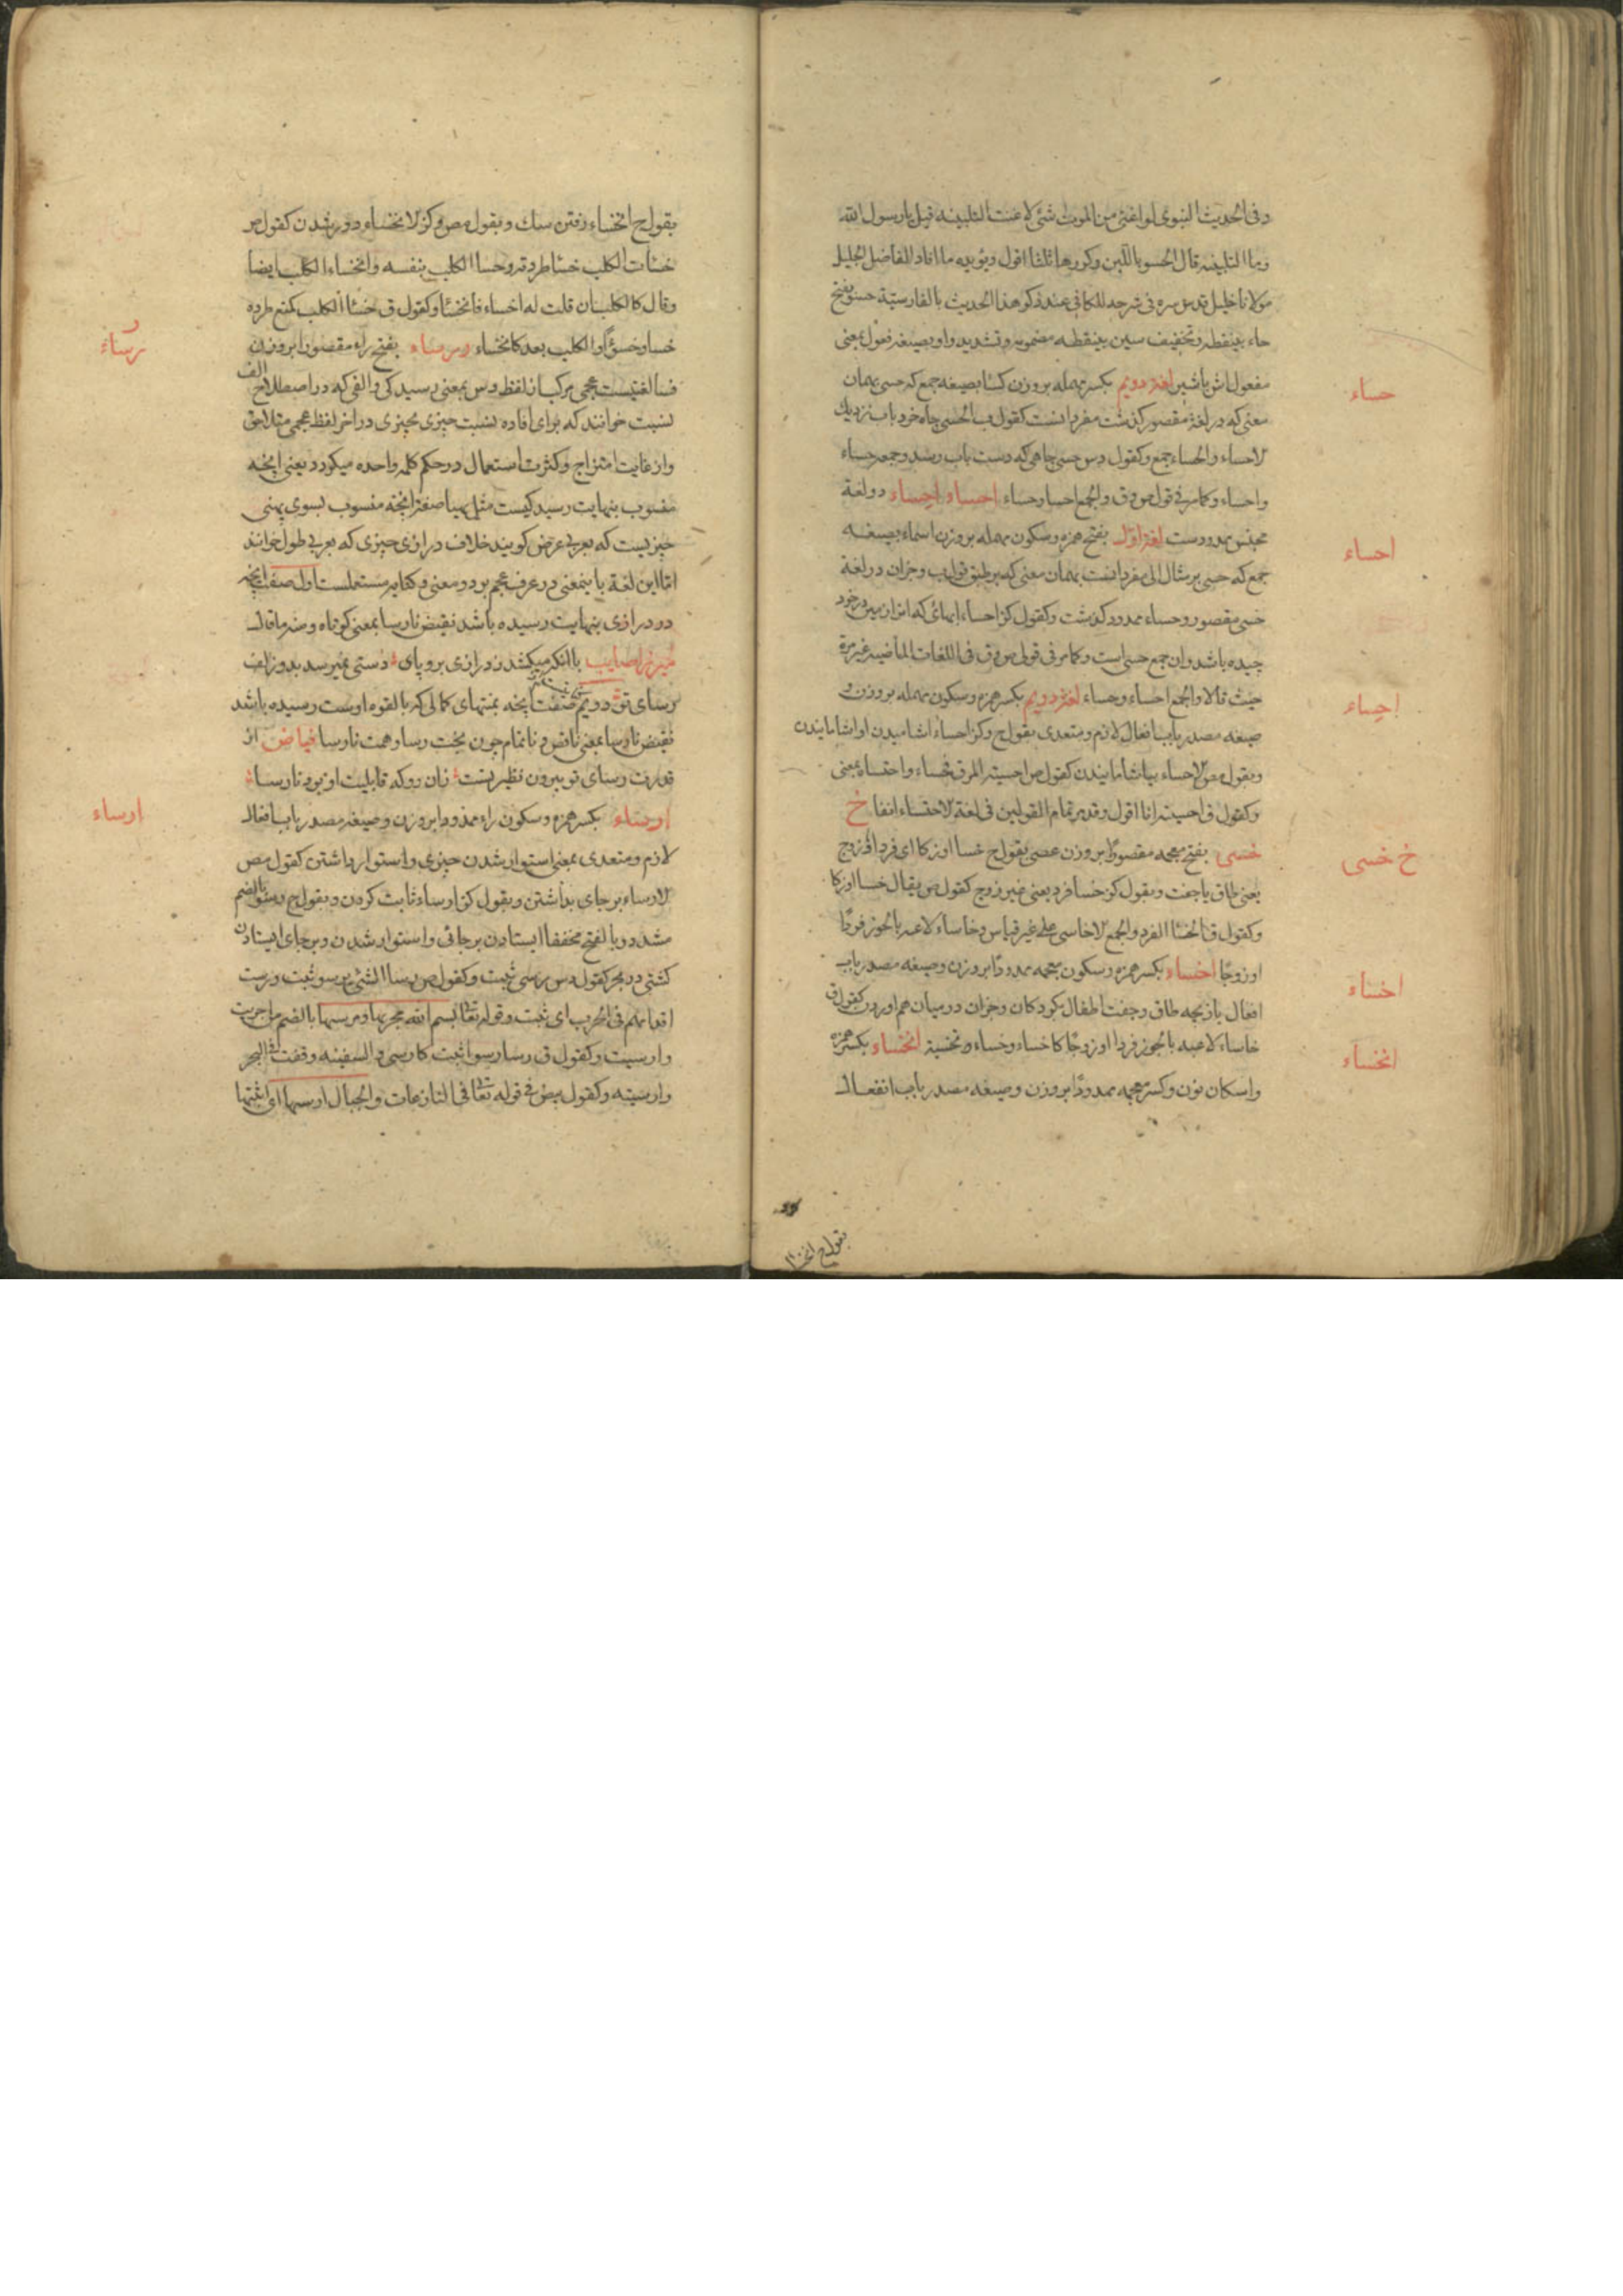 وفی الحدیث النبوی لو اغنی من الموت شئ لاغنت التلبینه قیل یا رسول الله
وما التلبینه قال الحسو باللبن وکررها ثلثا اقول ویؤیده ما افاد الفاضل الجلیل
مولانا خلیل قدس سره فی شرحه للکافی عند ذکر هذا الحدیث بالفارسیة حسو بفتح
حاء بینقطه وتخفیف سین بینقطه مضمومه وتشدید واو بصیغه فعول بمعنی
مفعول اش باشیر لغة دویم بکسر مهمله بروزن کسا بصیغه جمع که حسی بهمان
حساء
معنی که در لغة مقصور کذشت مفرد انست کقول ب الحسی چاه خرد باب نزدیك
الاحساء والحساء جمع وکقول دس حسی چاهی که دست باب رسد وجمعه حساء
واحساء وکما مر فی قول ص وق والجمع احسا وحساء احساء و احساء دو لغة
مجنس ممدود ست لغة اول بفتح همزه وسکون مهمله بروزن اسماء بصیغه
احساء
جمع که حسی بر مثال الی مفرد انست بهمان معنی که بر طبق قول ب وجزان در لغة
حسی مقصور وحساء ممدود کذشت وکقول کز احساء ابهائی که از ان زمین در خود
چیده باشد وان جمع حسی است وکما مر فی قول ص وق فی اللغات الماضیه غیر مرة
حیث قالا والجمع احساء وحساء لغة دویم بکسر همزه وسکون مهمله بروزن و
احساء
صیغه مصدر باب افعال لازم ومتعدی بقول ج وکز احساء اشامیدن او اشامانیدن
وبقول مص الاحساء بیاشامانیدن کقول ص احسیته المرق فحساء واحتساه بمعنی
وکقول ق احسیته انا اقول وقد مر تمام القولین فی لغة الاحتساء انفا خ
خسی بفتح معجمه مقصورًا بروزن عصی بقول ج خسا او زکا ای فرد او زوج
خ خسی
یعنی طاق یا جفت وبقول کز خسا فرد یعنی غیر زوج کقول ص یقال خسا او زکا
وکقول ق الخسا الفرد والجمع الاخاسی علی غیر قیاس وخاساء لاعبه بالجوز فردًا
او زوجًا اخساء بکسر همزه وسکون معجمه ممدودًا بروزن وصیغه مصدر باب
اخساء
افعال بازیچه طاق وجفت اطفال بکردکان وجزان در میان هم اوردن کقول ق
خاساء لاعبه بالجوز فردا او زوجًا کاخساء وخساء وتخسیة انخساء بکسر همزه
انخساء
واسکان نون وکسر معجمه ممدودًا بروزن وصیغه مصدر باب انفعال
بقول ج انخساء
بقول ج انخساء رفتن سك وبقول مص وکز الانخساء دور شدن کقول ص
خسأت الکلب خسأ طردته وخسا الکلب بنفسه وانخساء الکلب ایضا
وقال کالکلب ان قلت له اخساء فانخسا وکقول ق خسا الکلب کمنع طرده
خسا وخسوًا والکلب بعد کانخساء ر رساء بفتح راء مقصورا بروزن
ر
رساء
فسا لغتیست عجمی مرکب از لفظ رس بمعنی رسید کی والفی که در اصطلاح الف
نسبت خوانند که برای افاده نسبت چیزی بچیزی در اخر لفظ عجمی مثلا حق
واز غایت امتزاج وکثرت استعمال در حکم کلمه واحده میکردد یعنی انچه
منسوب بنهایت رسید کیست مثل پهنا صفة انچه منسوب بسوی پهنی
چیزیست که بعربی عرض کویند خلاف درازی چیزی که بعربی طول خوانند
اما این لغة باینمعنی در عرف عجم بر دو معنی وکنایه مستعملست اول صفت انچه
در درازی بنهایت رسیده باشد نقیض نارسا بمعنی کوتاه ومنه ما قال
میرزا صایب با انکه میکشد ز درازی بروپای دستی نمیرسد بدو زلف
رسای تو دویم صفت انچه بمنتهای کمالی که بالقوه اوست رسیده باشد
نقیض نارسا بمعنی ناقص وناتمام چون بخت رسا وهمت نارسا فیاض از
قدرت رسای تو بیرون نظیر تست زان روکه قابلیت او بود نارسا
ارساء بکسر همزه وسکون راء ممدودا بروزن وصیغه مصدر باب افعال
ارساء
لازم ومتعدی بمعنی استوار شدن چیزی واستوار داشتن کقول مص
الارساء بر جای بداشتن وبقول کز ارساء ثابت کردن وبقول ج رسو بالضم
مشدد وبالفتح مخففا ایستادن بر جائی واستوار شدن وبر جای ایستادن
کشتی در بحر کقول دس رسی ثبت وکقول ص رسا الشئ یرسو ثبت ورست
اقدامهم فی الحرب ای ثبت وقوله تعالی بسم الله مجریها ومرسیها بالضم من اجریت
وارسیت وکقول ق رسا رسوا ثبت کارسی والسفینه وقفت فی البحر
وارسیته وکقول بیض فی قوله تعالی فی النازعات والجبال ارسیها ای اثبتها